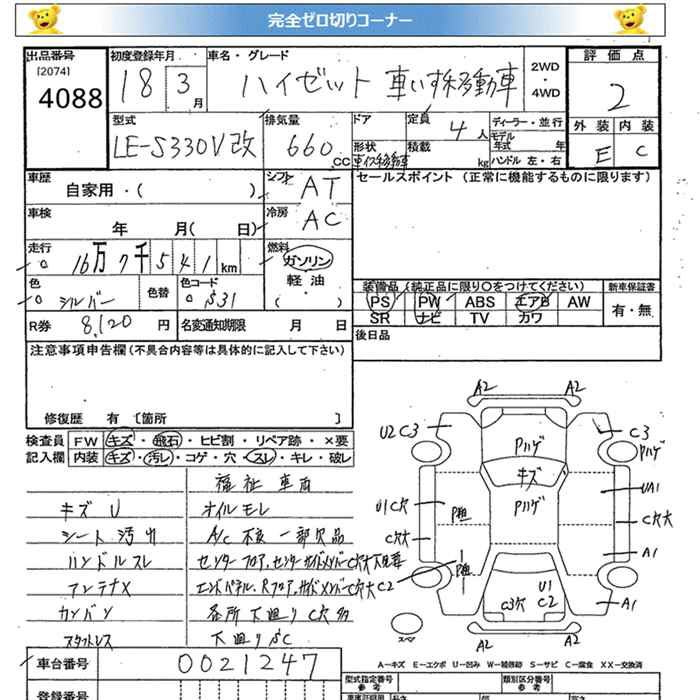 完全ゼロ切りコーナー
出品番号
[2074]
4088
初度登録年月
18 3月
車名・グレード
ハイゼット 車いす移動車
2WD
・
4WD
評価点
2
外装 内装
E C
型式
LE-S330V改
排気量
660 CC
ドア
形状
車イス移動車
定員
4 人
積載
kg
ディーラー・並行
モデル
年式 年
ハンドル 左・右
車歴
自家用・( )
シフト
AT
セールスポイント (正常に機能するものに限ります)
車検
年 月( 日)
冷房
AC
走行
16万7千541km
燃料
ガソリン
軽油
( )
色
シルバー
色替
色コード
S31
装備品(純正品に限り○をつけてください)
新車保証書
PS PW ABS エアB AW
SR ナビ TV カワ
有・無
R券
8,120 円
名変通知期限 月 日
後日品
注意事項申告欄(不具合内容等は具体的に記入して下さい)
修復歴 有 [箇所 ]
検査員
記入欄
FW キズ・飛石・ヒビ割・リペア跡・×要
内装 キズ・汚レ・コゲ・穴・スレ・キレ・破レ
福祉車両
キズ U
オイルモレ
シート汚れ
A/C不良 一部欠品
ハンドルスレ
センターフロア、センターサイドメンバーC穴大
アンテナX
エンドパネル、Rフロア、サイドメンバーC穴大 C2
カンバン
各所下廻りC穴多
スタットレス
下廻りSC
車台番号
0021247
登録番号
A2 A2
U2 C3
C3
Pハゲ
Pハゲ
キズ
Pハゲ
U1 C穴
C穴大
P跡
P跡
UA1
C穴大
A1
A1
U1
C3穴 C2
スペア
A2 A2
A－キズ E－エクボ U－凹み W－補修跡 S－サビ C－腐食 XX－交換済
型式指定番号
参考
類別区分番号
参考